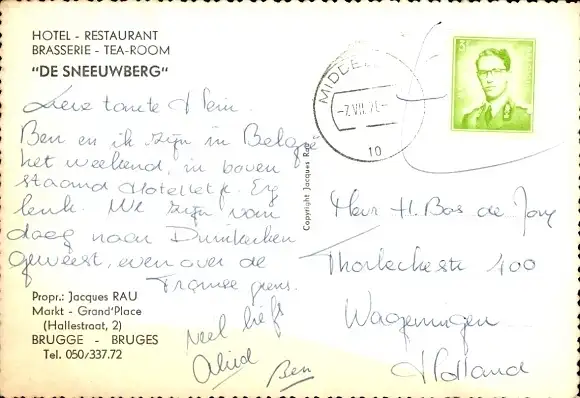 HOTEL - RESTAURANT
BRASSERIE - TEA-ROOM
"DE SNEEUWBERG"
Lieve tante Klein.
Ben en ik zijn in België
het weekend, in boven
staand Hotelletje. Erg
leuk. We zijn van
daag naar Duinkerken
geweest, even over de
Franse grens.
Veel liefs
Ben
Propr.: Jacques RAU
Markt - Grand'Place
(Hallestraat, 2)
BRUGGE - BRUGES
Tel. 050/337.72
Copyright Jacques Rau
MIDDEL
-7.VII.71-
10
3F
Mevr H. Bos de Jong
Thorbeckestr 400
Wageningen
Holland